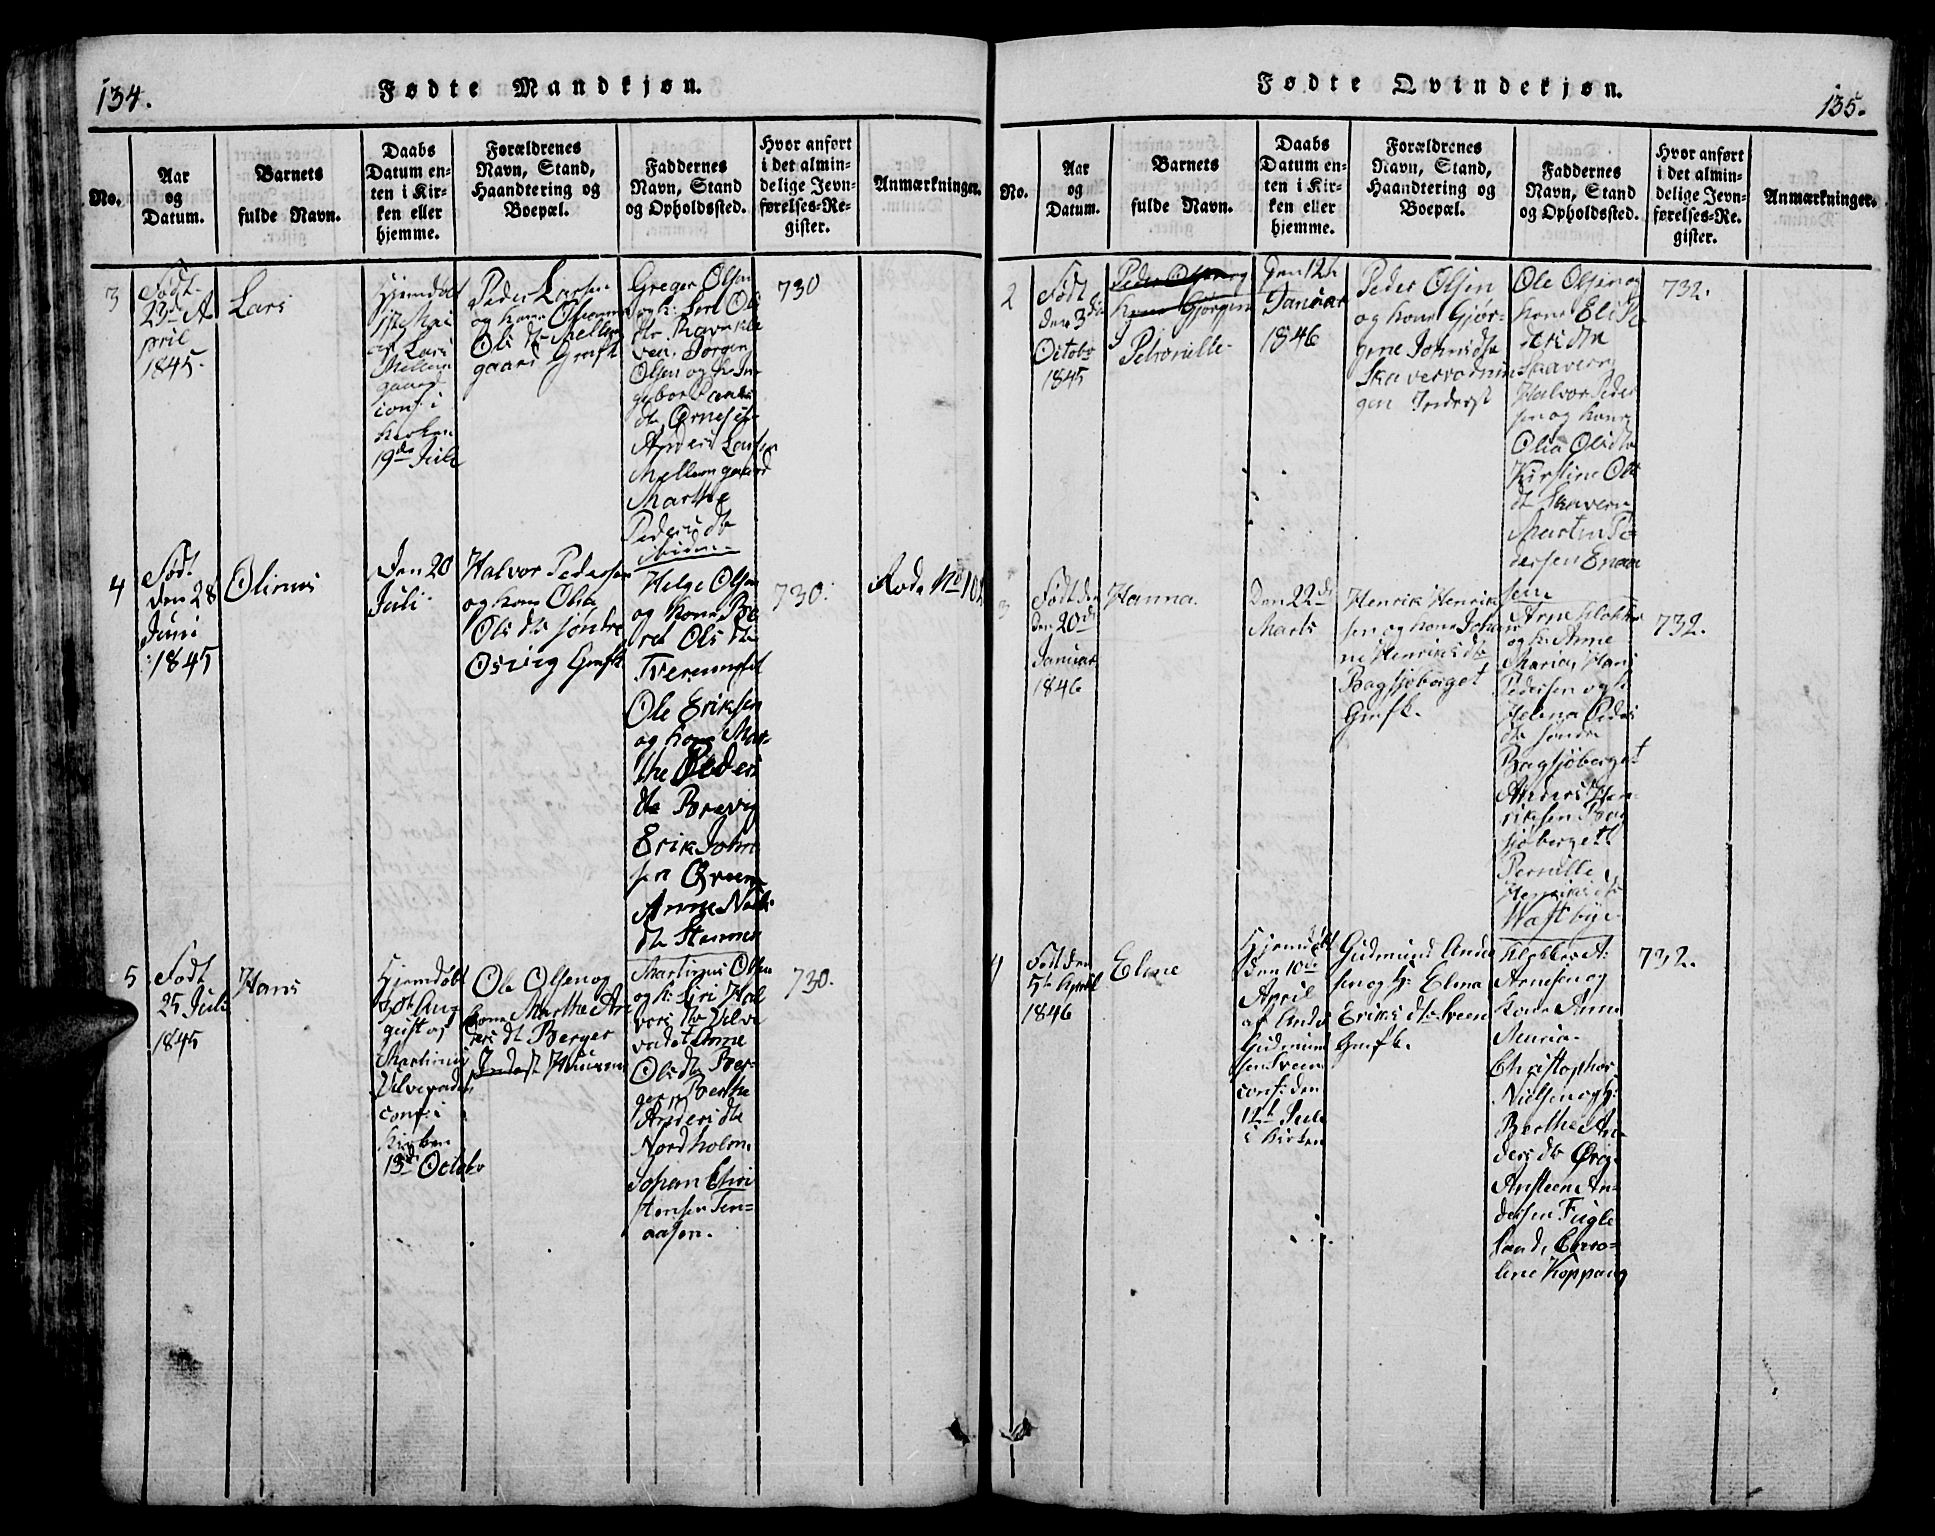 134.
Fødte Mandkjøn.
No.
Aar
og
Datum.
Barnets
fulde Navn.
Daabs
Datum en-
ten i Kir-
ken eller
hjemme.
Forældrenes
Navn, Stand,
Haandtering og
Boepæl.
Faddernes
Navn, Stand
og Opholdssted.
Hvor anført
i det almin-
delige Jevn-
førelses-Re-
gister.
Anmærkninger.
3
Født
23de A
pril
1845.
Lars
Hjemdøbt
Mai
af Lars
Mellem
gaard
conf: i
Kirken
19de Juli
Peder Larsen
og kone
Ols dtr Mellem
gaard
Greger Olsen
og k:
Jørgen
Olsen og k: In
geborg
Anders Larsen
Mellemgaard
Marthe
Peders dtr
730
4
Født
Den 28
Juni
1845
Olinus
Den 20
Juli
Halvor Pedersen
og kone Olia
Ols dtr Søndre
Osvig
Helge Olsen
og kone Be
ret Ols dtr
Ole Eriksen
og kone Mar-
the Peders
dtr Brævig
Erik John
sen Qveen
Anne Niels
dtr Stammen
730.
Rode No 102
5
Født
25 Juli
1845
Hans
Hjemdøbt
30t Aug
gust af
Martinus
Ulvevaden
conf: i
Kirken
13de Octobr
Ole Olsen og
kone Marthe An
ders dtr Berger
Martinus Olsen
og k: Siri Hal
vors dtr Ulve
vadet Anne
Ols dtr Ber-
gern Berthe
Anders dtr
Nordholm.
Johan Chri
stensen Ten-
aasen.
730.
135.
Fødte Qvindekjøn.
No.
Aar
og
Datum.
Barnets
fulde Navn.
Daabs
Datum en-
ten i Kir-
ken eller
hjemme.
Forældrenes
Navn, Stand,
Haandtering og
Boepæl.
Faddernes
Navn, Stand
og Opholdssted.
Hvor anført
i det almin-
delige Jevn-
førelses-Re-
gister.
Anmærkninger.
2
Født
den 3de
Octobr
1845
Peder Olsen og
kone Gjørgen
Petronille
Den 12te
Januar
1846
Peder Olsen
og kone Gjør-
gine Johnsdtr
Ole Olsen og
kone Eli Pe
ders dtr
Skavern
Halvor Peder
sen og kone
Olia Ols dtr
Kirstine Ols
dtr Skavern
Martin Pe
dersen
732.
3
Født den
Den 20de
Januar
1846
Hanna.
Den 22de
Marts
Henrik Henrik
sen og kone Johan
ne Henriks dtr
Bagsjøberget
Arne Klokker
og k: Anne
Maria, Hans
Pedersen og k:
Helena Peders
dtr Søndre
Bagsjøberget
Anders Hen
riksen Bag
sjøberget
Pernille
Henriks dtr
732.
4
Født den
5te April
1846
Eline
Hjemdøbt
den 10de
April
af Ands
Gudmund
sen Sveen
conf: den
12te Juli
i Kirken
Gudmund Ander
sen og k: Elina
Eriks dtr Sveen
Klokker A:
Arnesen og
Kone Anne
Maria.
Christopher
Nielsen og k:
Berthe An
ders dtr
Ansteen An-
dersen Fugle
sand, Caro-
line Koppang
732.